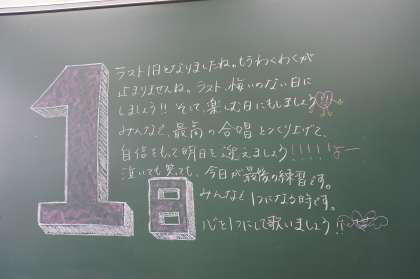 1日
ラスト1日となりましたね。もうわくわくが
止まりませんね。ラスト、悔いのない日に
しましょう!! そして、楽しむ日にもしましょう
みんなで、最高の合唱をつくり上げて、
自信をもって明日を迎えましょう!!!!!
泣いても笑っても、今日が最後の練習です。
みんなで1つになる時です。
心を1つにして歌いましょう!!